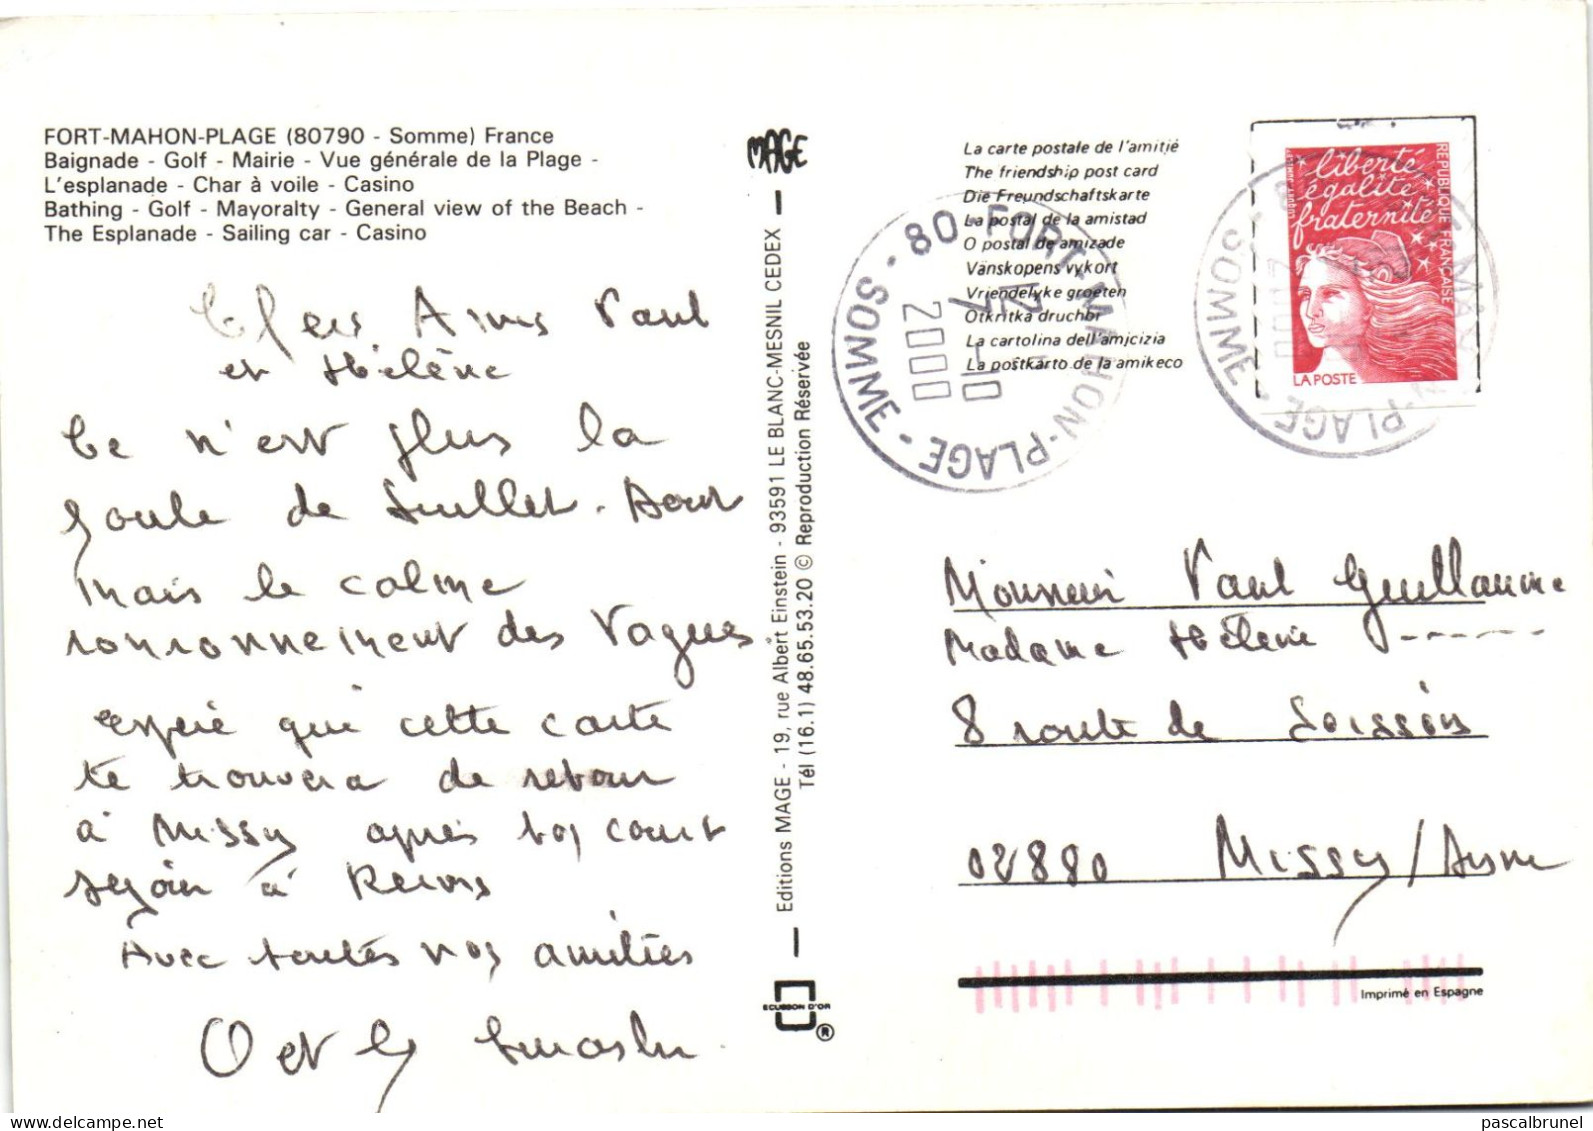 FORT-MAHON-PLAGE (80790 - Somme) France
Baignade - Golf - Mairie - Vue générale de la Plage -
L'esplanade - Char à voile - Casino
Bathing - Golf - Mayoralty - General view of the Beach -
The Esplanade - Sailing car - Casino
Chers Amis Paul
et Hélène
Ce n'est plus la
foule de Juillet - Aout
mais le calme
ronronnement des vagues
espère que cette carte
te trouvera de retour
à Missy après ton court
séjour à Reims
Avec toutes nos amitiés
MAGE
Editions MAGE - 19, rue Albert Einstein - 93591 LE BLANC-MESNIL CEDEX
Tél (16.1) 48.65.53.20 © Reproduction Réservée
ECUSSON D'OR
®
La carte postale de l'amitié
The friendship post card
Die Freundschaftskarte
La postal de la amistad
O postal de amizade
Vänskopens vykort
Vriendelyke groeten
Otkritka druchbi
La cartolina dell'amicizia
La poŝtkarto de la amikeco
80 FORT-MAHON-PLAGE - SOMME -
2000
liberté
égalité
fraternité
RÉPUBLIQUE FRANÇAISE
LA POSTE
Monsieur Paul Guillaume
Madame Hélène -----
8 route de Soissons
02880 Missy/Aisne
Imprimé en Espagne
delcampe.net
pascalbrunel